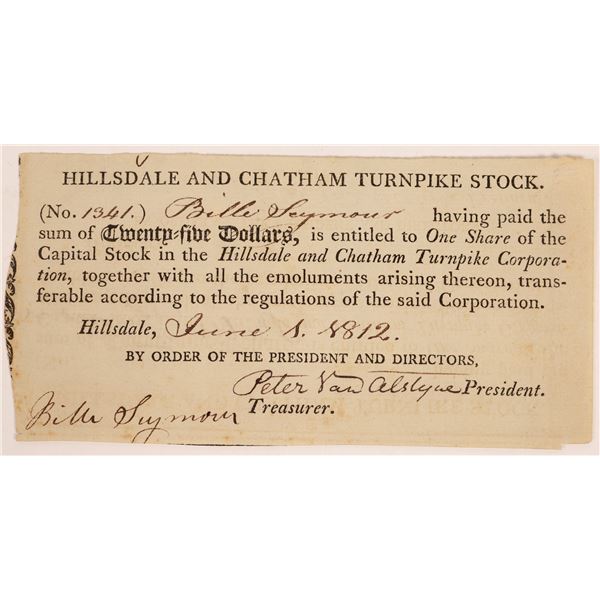 HILLSDALE AND CHATHAM TURNPIKE STOCK.
(No. 1341.) Bille Seymour having paid the
sum of Twenty-five Dollars, is entitled to One Share of the
Capital Stock in the Hillsdale and Chatham Turnpike Corpora-
tion, together with all the emoluments arising thereon, trans-
ferable according to the regulations of the said Corporation.
Hillsdale, June 1. 1812.
BY ORDER OF THE PRESIDENT AND DIRECTORS,
Peter Van Alstyne President.
Bille Seymour Treasurer.